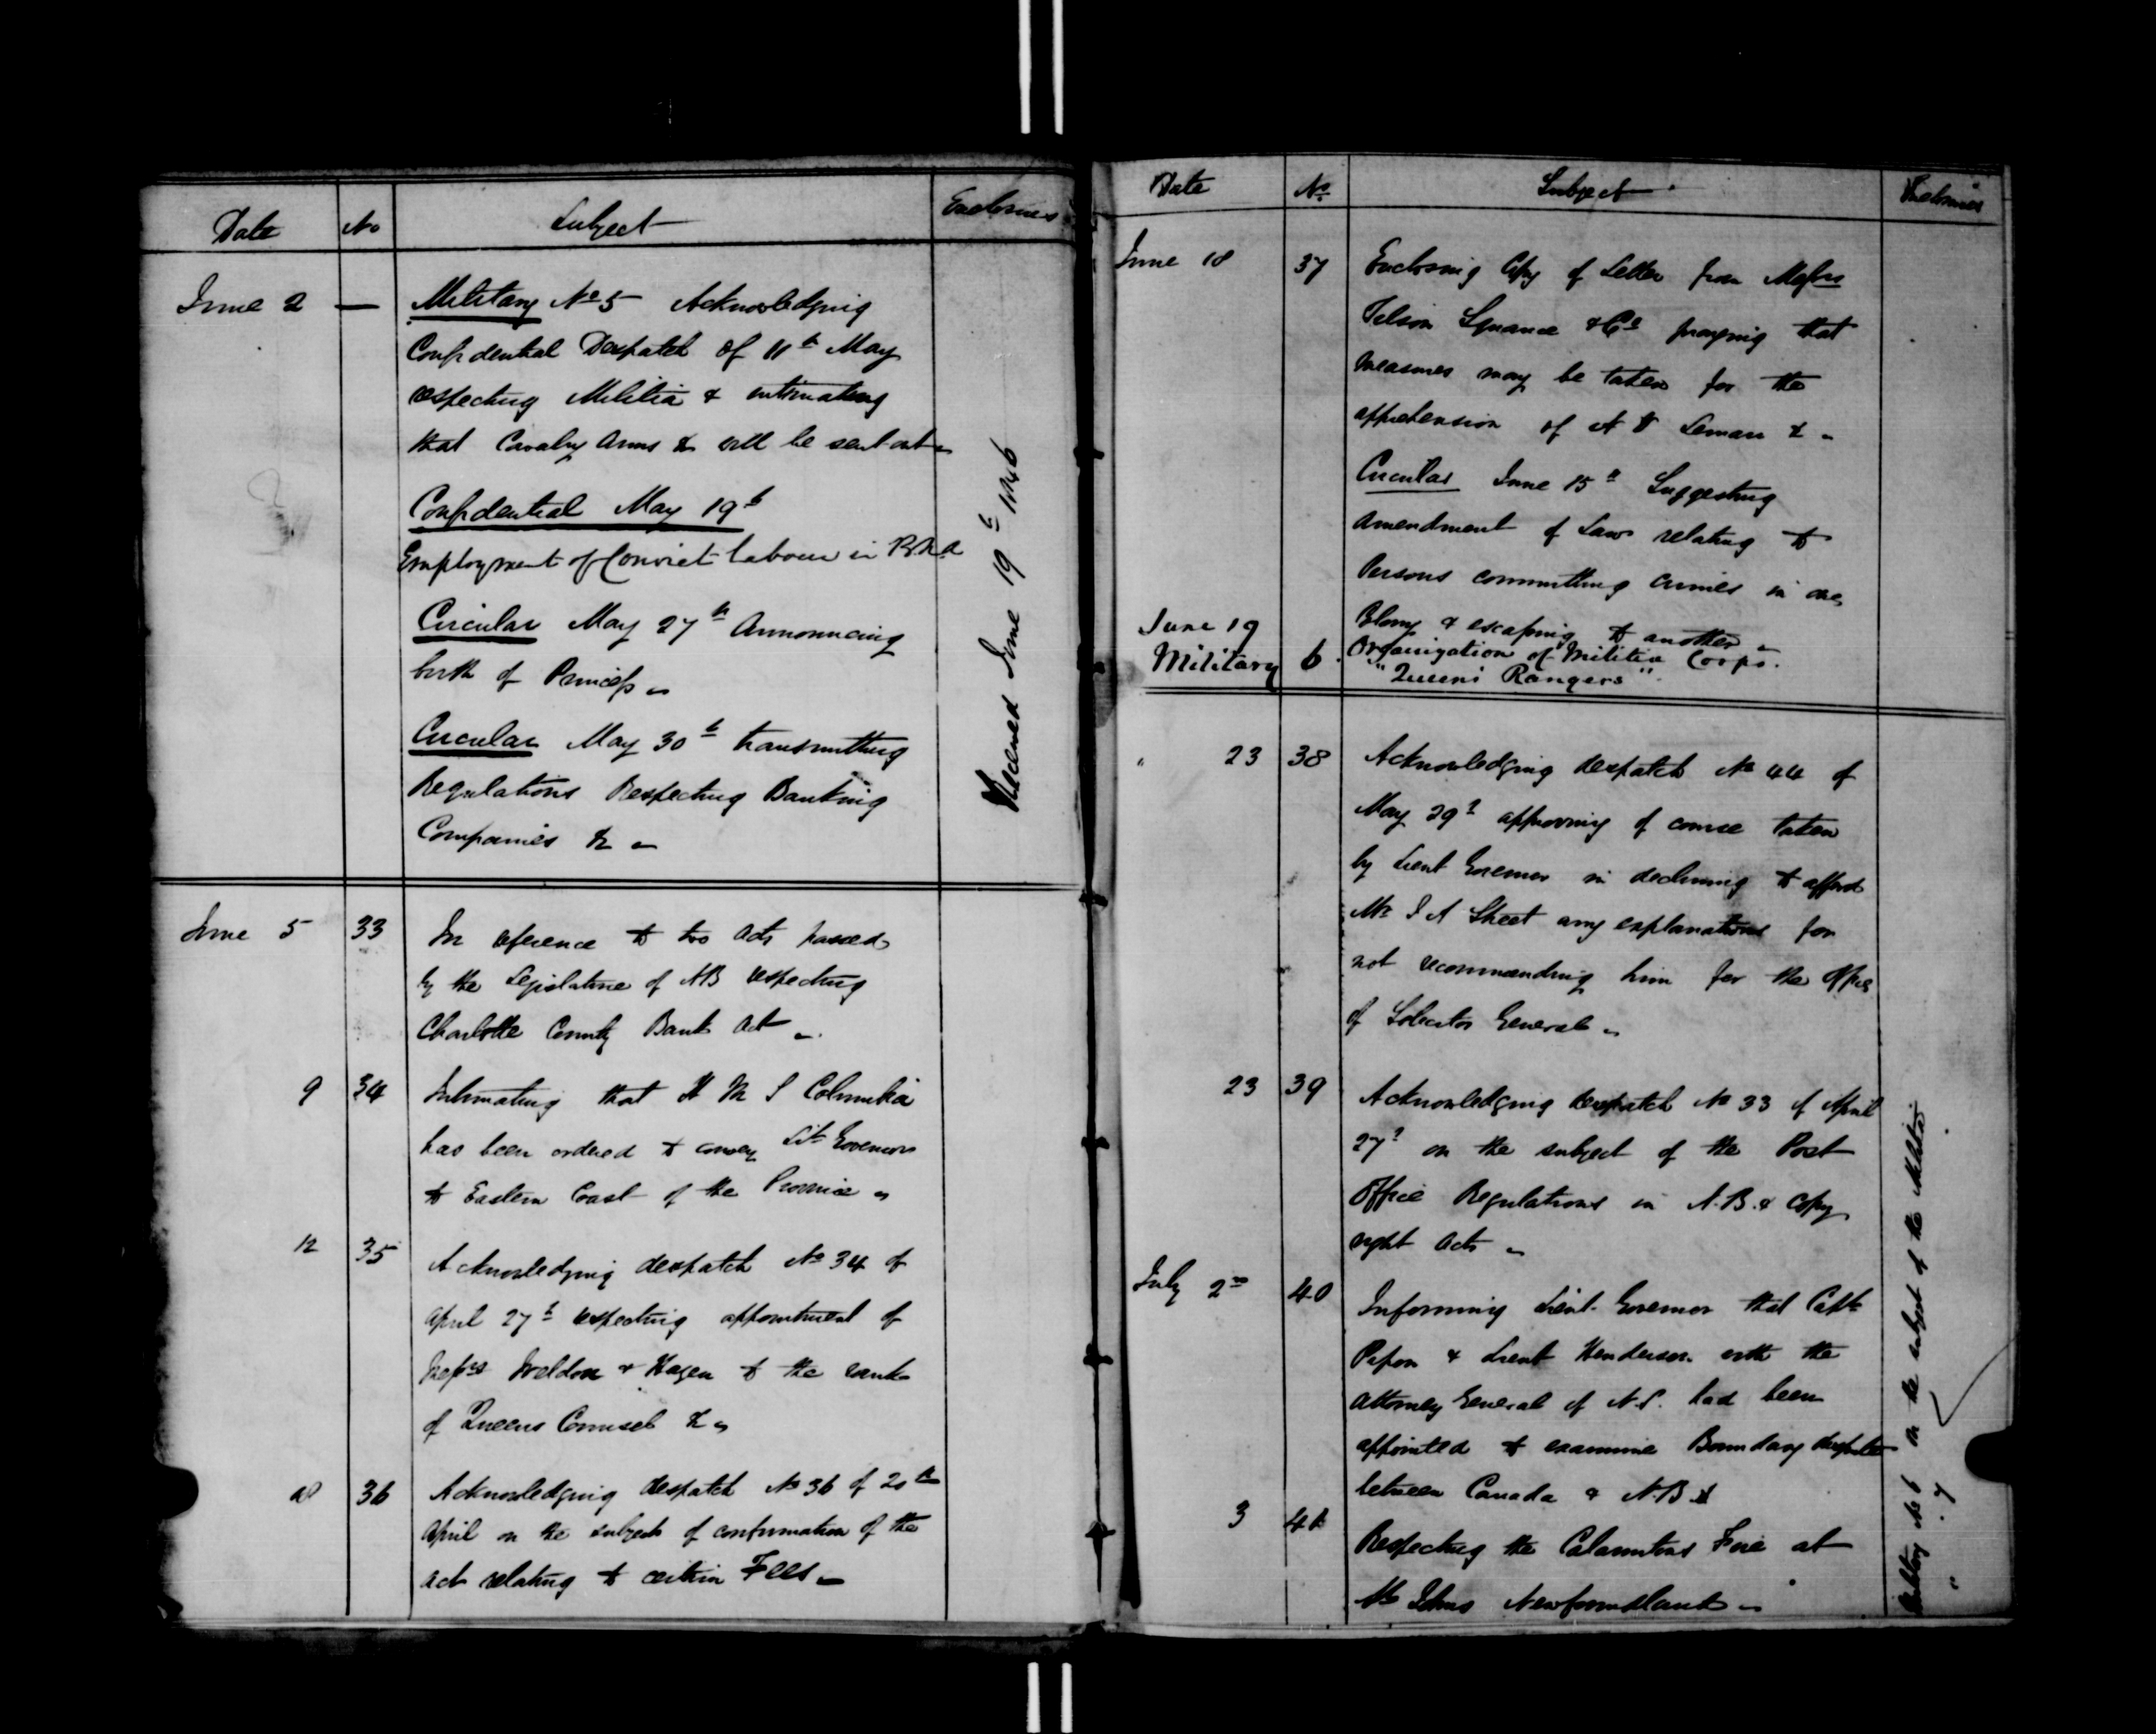 Date No Subject Enclosures
June 2 — Military No 5 Acknowledging
Confidential Despatch of 11th May
respecting Militia & intimating
that Cavalry Arms &c will be sent out
Confidential May 19th
Employment of Convict labour in B.N.A
Circular May 27th Announcing
birth of Princess
Circular May 30th transmitting
Regulations Respecting Banking
Companies &c
Received June 19th 1846
June 5 33 In reference to two acts passed
by the Legislature of NB respecting
Charlotte County Bank Act
9 34 Intimating that H M S Columbia
has been ordered to convey Lt Governor
to Eastern Coast of the Province
12 35 Acknowledging despatch No 34 of
April 27th respecting appointment of
Messrs Weldon & Hazen to the rank
of Queens Counsel &c
18 36 Acknowledging despatch No 36 of 20th
April on the subject of confirmation of the
act relating to certain Fees
Date No. Subject Enclosures
June 18 37 Enclosing Copy of Letter from Messrs
Squance & Co praying that
measures may be taken for the
apprehension of Leman &c
Circular June 15th Suggesting
amendment of Law relating to
Persons committing crimes in one
Colony & escaping to another
June 19
Military 6. Organization of Militia Corps.
"Queens Rangers".
" 23 38 Acknowledging despatch No 44 of
May 29th approving of course taken
by Lieut Governor in declining to afford
Mr J A Street any explanations for
not recommending him for the Office
of Solicitor General
23 39 Acknowledging despatch No 33 of April
27th on the subject of the Post
Office Regulations in N.B. & copy
right acts
July 2nd 40 Informing Lieut. Governor that Capt
Pipon & Lieut Henderson with the
Attorney General of N.S. had been
appointed to examine Boundary dispute
between Canada & N.B
3 41 Respecting the Calamitous Fire at
St Johns Newfoundland
Military No 6 on the subject of the Militia
" " 7